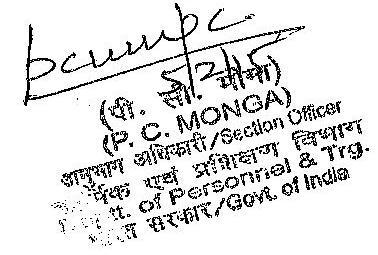 5/2/15
(पी. सी. मोंगा)
(P. C. MONGA)
अनुभाग अधिकारी/Section Officer
कार्मिक एवं प्रशिक्षण विभाग
tt. of Personnel & Trg.
सरकार/Govt. of India